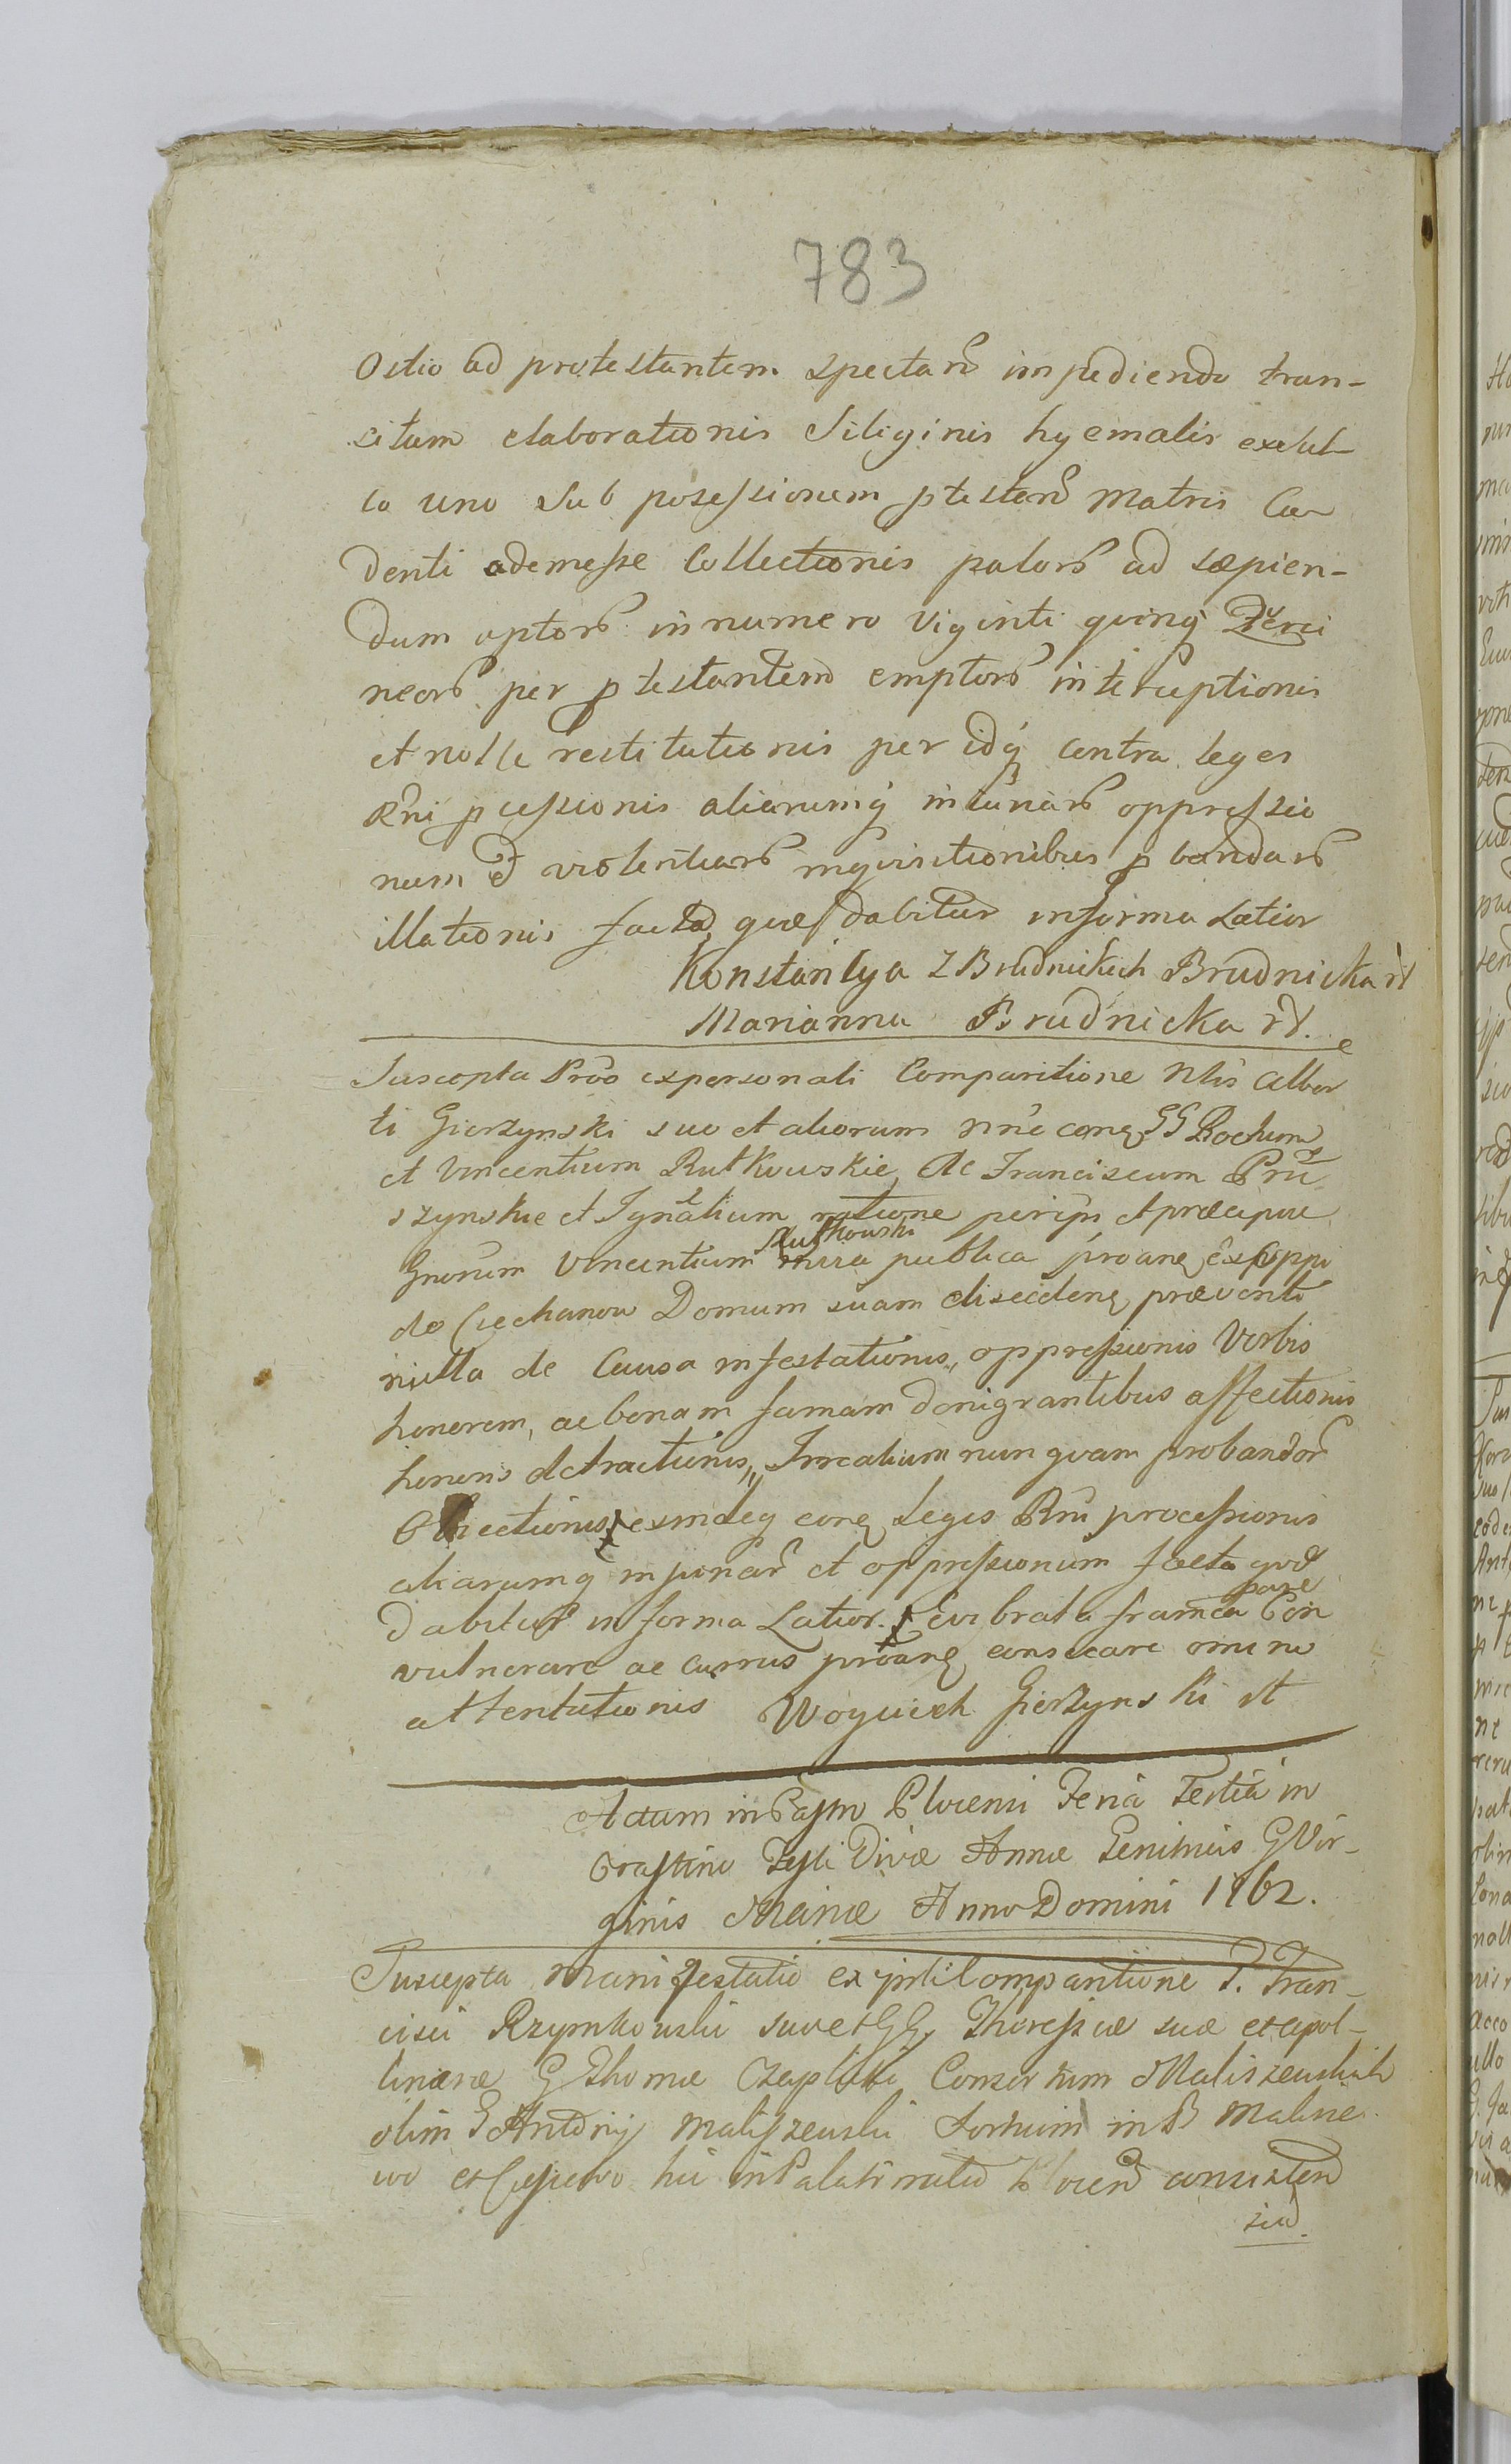 783
Ostio ad protestantem spectan impediendo tran-
situm elaborationis Siliginis hyemalis exelul-
co uno Sub possessionem ptestan Matris Ca-
denti ademesse Collectionis palor ad sæpien-
dum aptor in numero Viginti quinq
neor per ptestantem emptor interceptionis
et nolle restitutionis per idq contra leges
Rni pcessionis aliarumq iniuriar oppressio
num et violentiar inquisitionibus pbandar
illationis facta, quæ dabitur in forma Latior
Konstancya z Brudnickich Brudnicka
Marianna Brudnicka
Suscepta Prõo ex personali Comparitione Nlis Alber
ti Gierzynski suo et aliorum nne conq GG Rochum
et Vincentium Rutkowskie, Ac Franciscum Pru
szynskie et Ignatium ratione perijs et præcipue
Gnorum Vincentium Rutkowski via publica proanq ex Oppi
do Ciechanow Domum suam discedenq præventi
nulla de Causa infestationis, oppressionis Verbis
honorem, ac bonam famam denigrantibus affectionis
honoris detractionis, nunquam probandor
Obiectionis exindeq conq Leges Rni processionis
aliarumq injuriar et oppressionum facta quæ
dabitur in forma Latior. Evibrata framea sane Con
vulnerare ac currus proanq consecare omine
attentationis Woyciech Gierzynski
Actum in Plocensi Feria Tertia in
Crastino Festi Divæ Annæ Genitricis G Vir-
ginis Mariæ Anno Domini 1762.
Suscepta Manifestatio ex pnli Comparitione G. Fran-
cisci Rzymkowski suo et GG, Theressiæ suæ et Apol-
linaræ G Thomæ Czaplicki Consortum Maliszewskich
olim G Antonij Maliszewski Sortium in B Malise
wo et hic in Palatinatu Plocen consisten